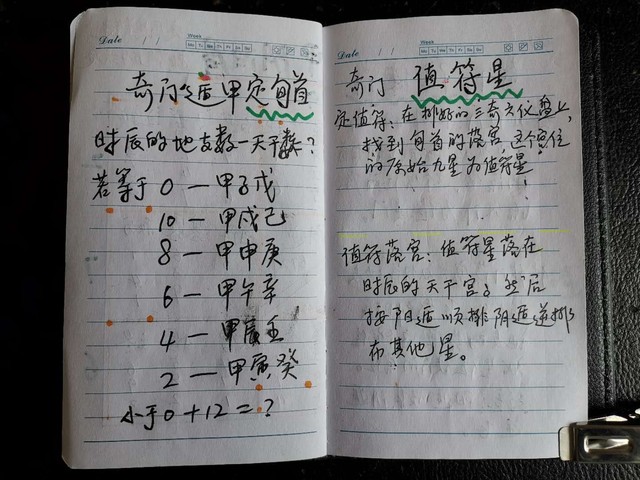 Date
Week
Mo Tu We Th Fr Sa Su
奇门遁甲定旬首
时辰的地支数一天干数?
若等于 0 — 甲子戊
10 — 甲戌己
8 — 甲申庚
6 — 甲午辛
4 — 甲辰壬
2 — 甲寅癸
小于0 + 12 = ?
Date
Week
Mo Tu We Th Fr Sa Su
奇门 值符星
定值符:在排好的三奇六仪盘上,
找到旬首的落宫,这个宫位
的原始九星为值符星!
值符落宫:值符星落在
时辰的天干宫,然后
按阳遁顺排阴遁逆排
布其他星。